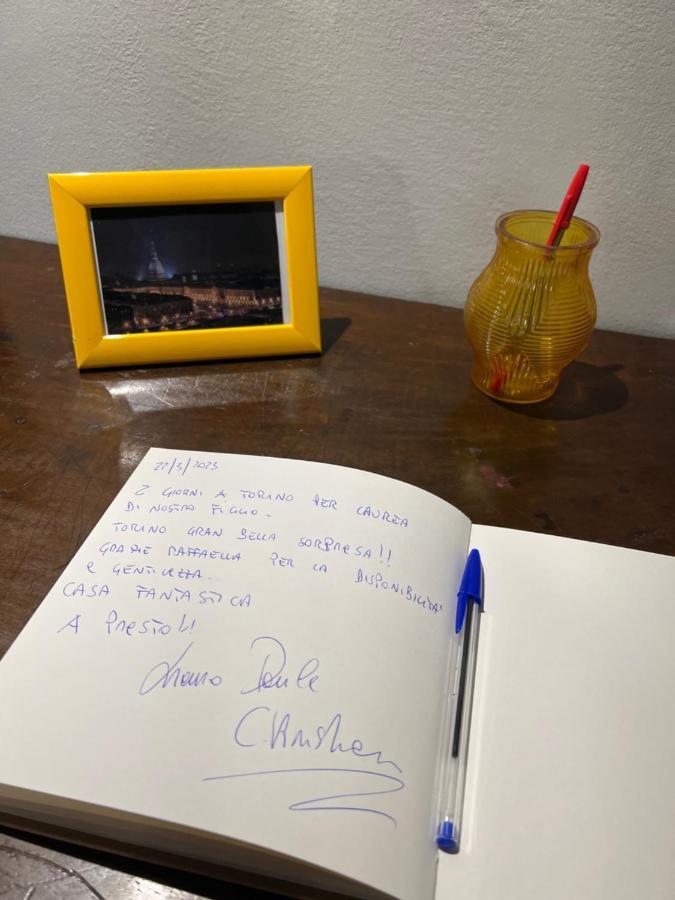 22/3/2025
2 GIORNI A TORINO PER LAUREA
DI NOSTRO FIGLIO.
TORINO GRAN BELLA SORPRESA!!
GRAZIE RAFFAELLA PER LA DISPONIBILITA'
E GENTILEZZA.
CASA FANTASTICA
A PRESTO!!